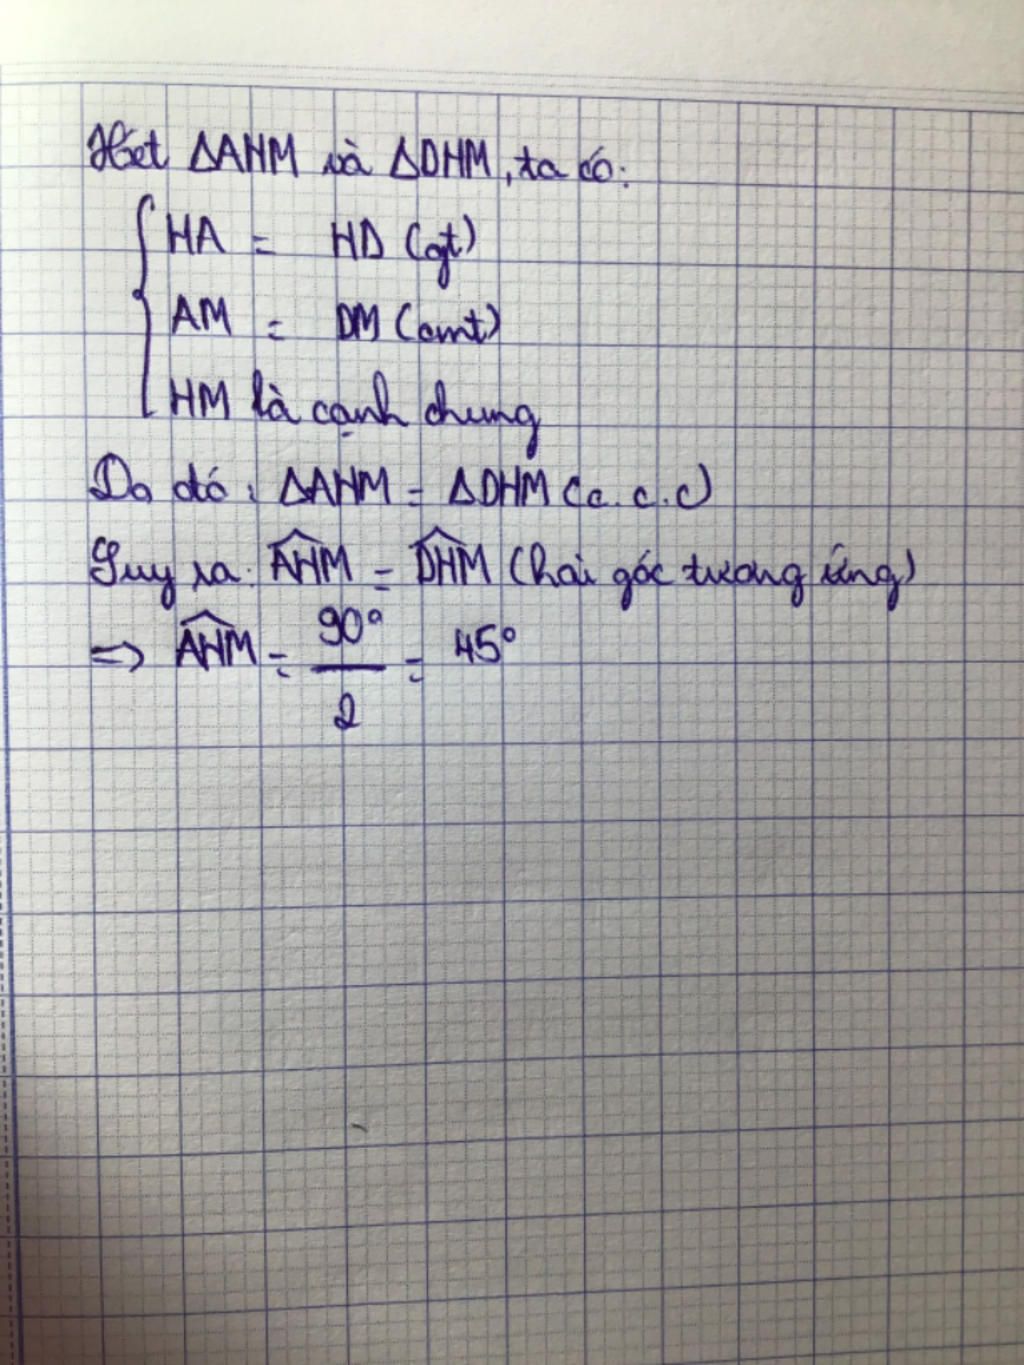 Xét ΔAHM và ΔDHM, ta có:
{ HA = HD (gt)
AM = DM (cmt)
HM là cạnh chung
Do đó: ΔAHM = ΔDHM (c.c.c)
Suy ra: \widehat{AHM} = \widehat{DHM} (hai góc tương ứng)
=> \widehat{AHM} = \frac{90°}{2} = 45°